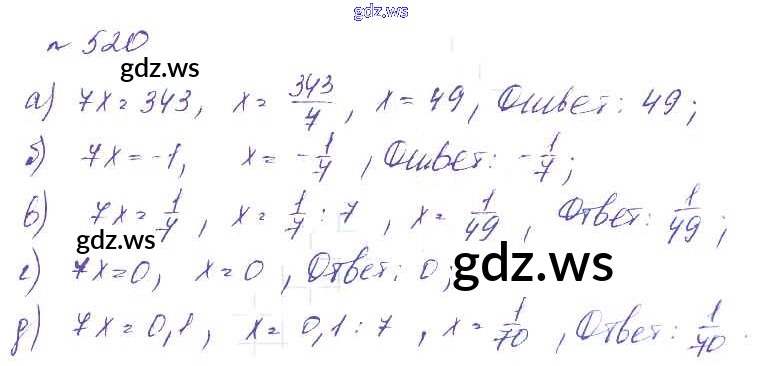 gdz.ws
№ 520
gdz.ws
а) 7x = 343, x = 343/7, x = 49, Ответ: 49;
б) 7x = -1, x = -1/7, Ответ: -1/7;
в) 7x = 1/7, x = 1/7 : 7, x = 1/49, Ответ: 1/49;
gdz.ws
г) 7x = 0, x = 0, Ответ: 0;
gdz.ws
д) 7x = 0,1, x = 0,1 : 7, x = 1/70, Ответ: 1/70.